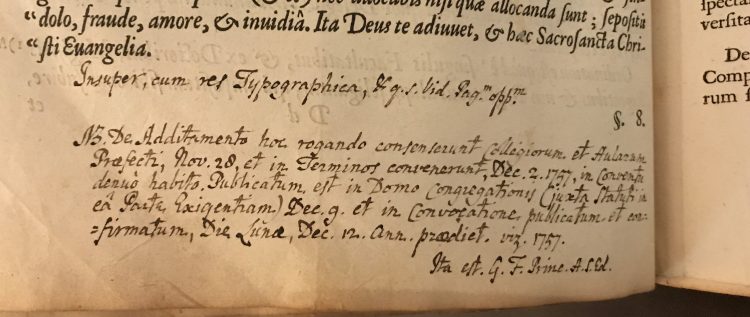 hoc allocabis nisi quæ allocanda sunt; sepositis
“dolo, fraude, amore, & invidiâ. Ita Deus te adiuvet, & hæc Sacrosancta Chri-
“sti Euangelia.
Insuper, cum res Typographica, &c q. s. Vid. Pag.m opp.m
§. 8.
NB. De Additamento hoc rogando consenserunt Collegiorum et Aularum
Præfecti, Nov. 28, et in Terminos convenerunt, Dec. 2. 1757, in Conventu
denuò habito. Publicatum est in Domo Congregationis (juxta Statuti in
eâ Parte Exigentiam) Dec. 9. et in Convocatione publicatum et con-
=firmatum, Die Lunæ, Dec. 12. Ann. prædict. viz. 1757.
Ita est. G. F.
specta
versita
De
Comp
rum f